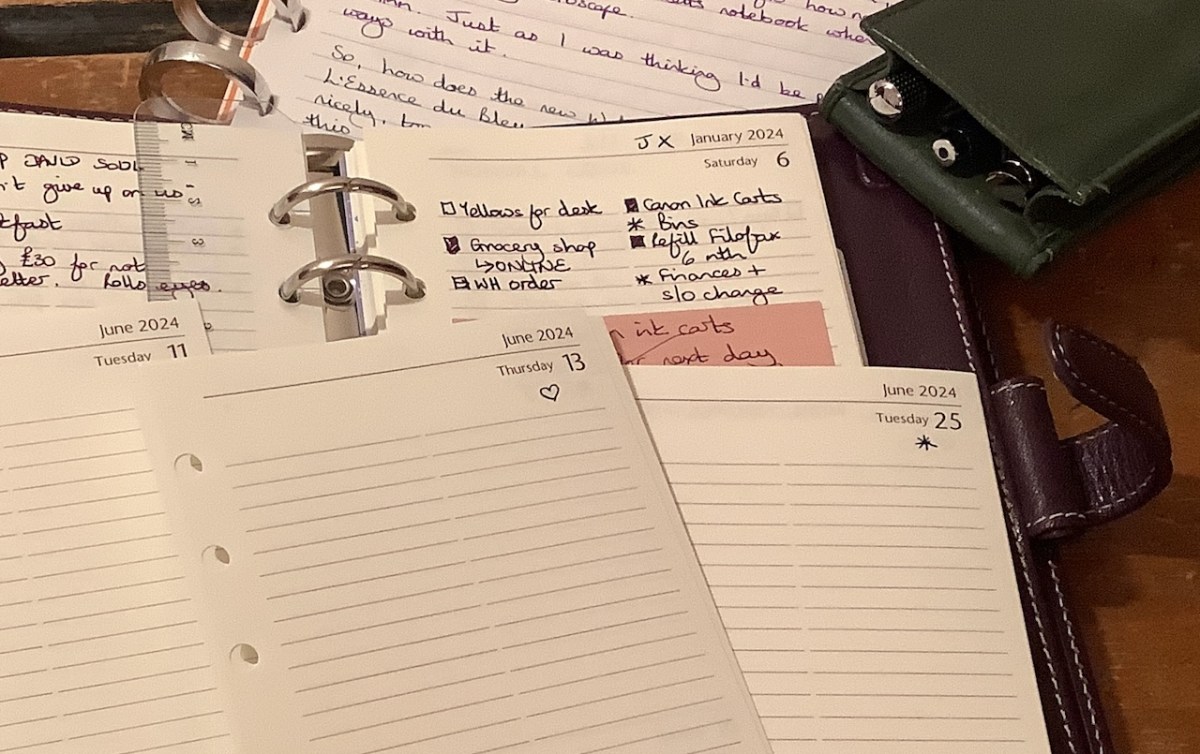 how
notebook when
Just as I was thinking I'd be
ways with it.
So, how does the new
L'Essence du Bleu
nicely,
this
DAVID SOUL
give up on us
£30 for not
Rolls eyes.
JX January 2024
Saturday 6
Yellows for desk
Grocery shop
↳ONLINE
WH order
Canon Ink Carts
Bins
Refill Filofax
6 mth
Finances +
s/o change
ink carts
next day
June 2024
Tuesday 11
June 2024
Thursday 13
June 2024
Tuesday 25